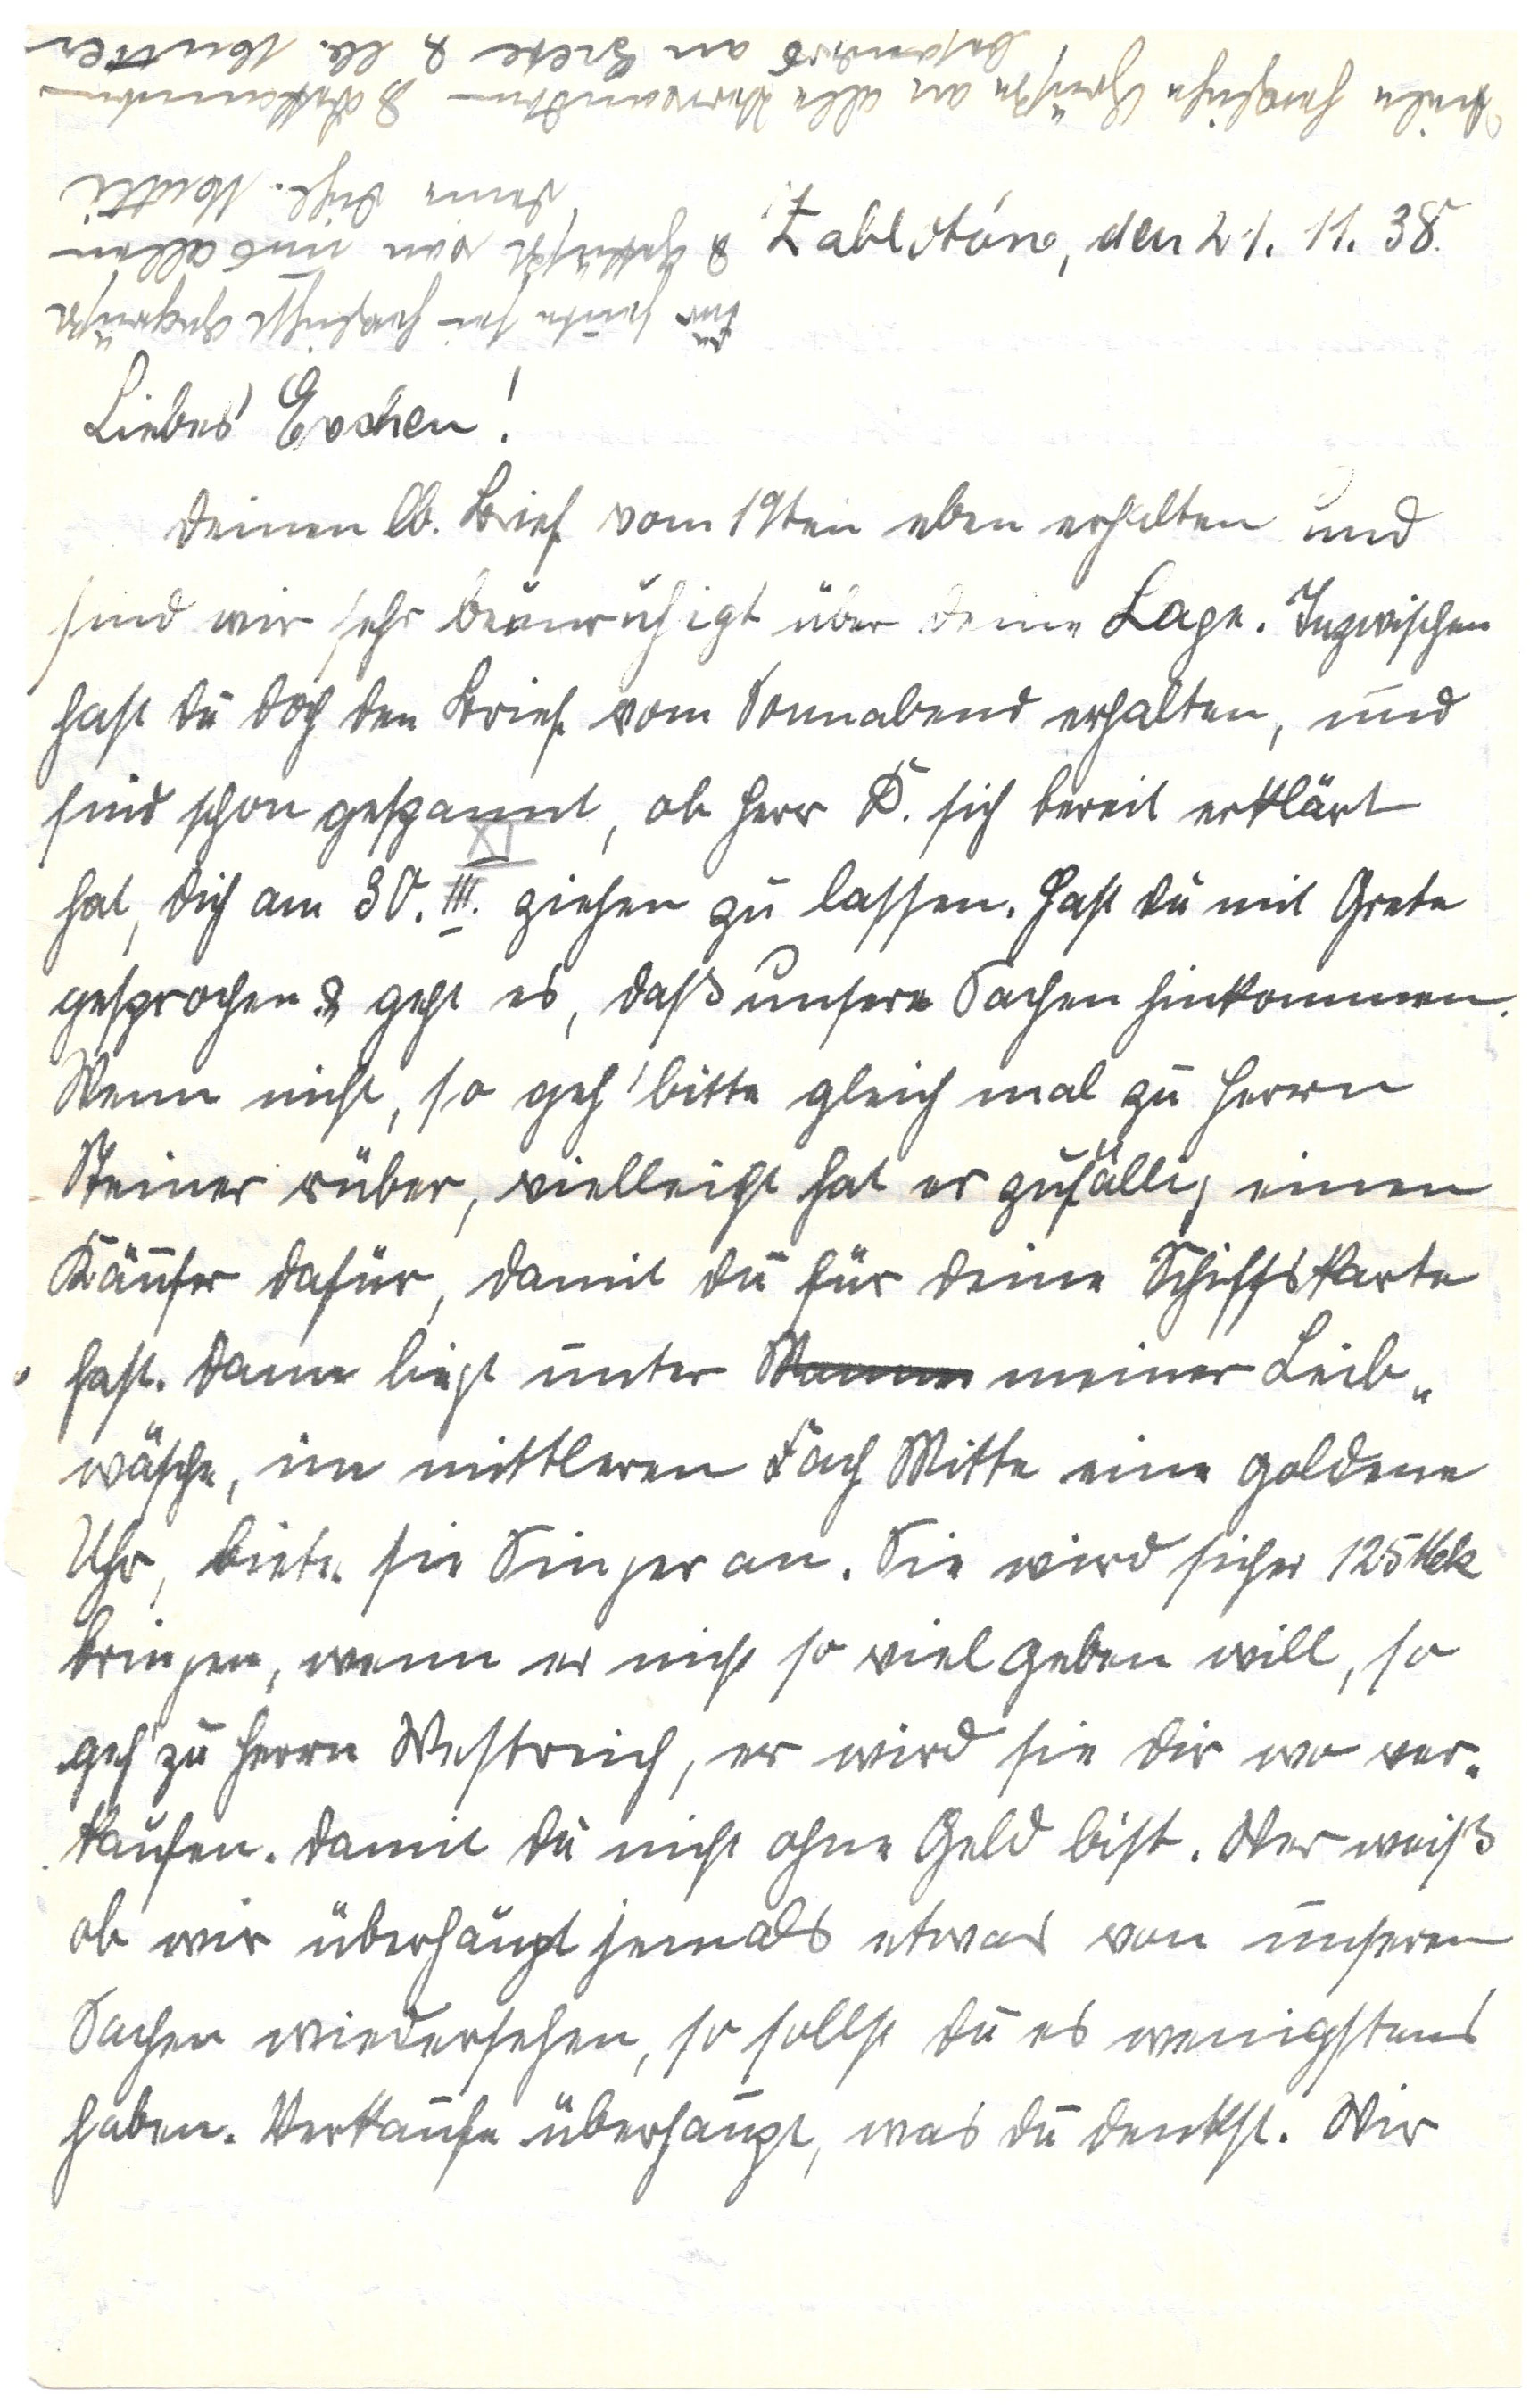 Zablotów, den 21. 11. 38.
Liebes Evchen!
Deinen lb. Brief vom 19ten eben erhalten und
sind wir sehr beunruhigt über deine Lage. Inzwischen
hast du doch den Brief vom Sonnabend erhalten, und
sind schon gespannt, ob Herr K. sich bereit erklärt
XI
hat, dich am 30. III. ziehen zu lassen. Hast du mit Grete
gesprochen & geht es, daß unsere Sachen hinkommen.
Wenn nicht, so geh' bitte gleich mal zu Herrn
Steiner rüber, vielleicht hat er zufällig einen
Käufer dafür, damit du für deine Schiffskarte
hast. Dann liegt unter meiner Leib-
wäsche, im mittleren Fach Mitte eine goldene
Uhr, biete sie Singer an. Sie wird sicher 125 Mk
bringen, wenn er nicht so viel geben will, so
geh' zu Herrn Westreich, er wird sie dir wo ver-
kaufen. Damit du nicht ohne Geld bist. Wer weiß
ob wir überhaupt jemals etwas von unseren
Sachen wiedersehen, so sollst du es wenigstens
haben. Verkaufe überhaupt, was du denkst. Wir
Für heute sei herzlichst gegrüßt
& geküßt von uns allen
deine dichl. Mutti
Viele herzliche Grüße an alle Verwandten & Bekannten
besonders an Grete & lb. Mutter